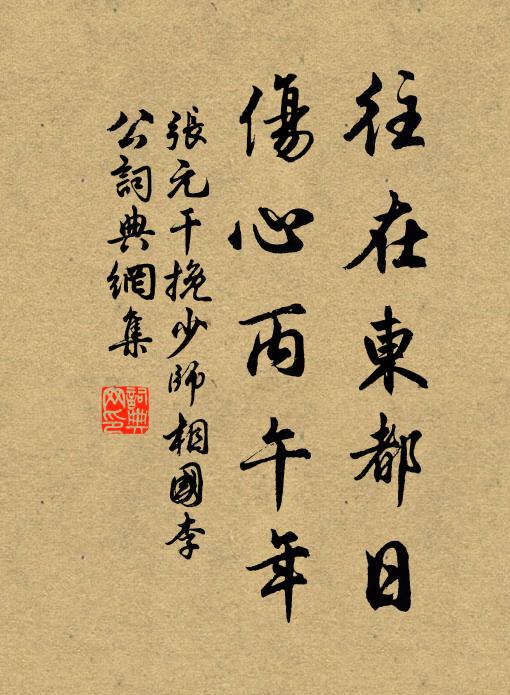 往在東都日
傷心丙午年
張元干挽少師相國李
公詞典網集
詞典網印